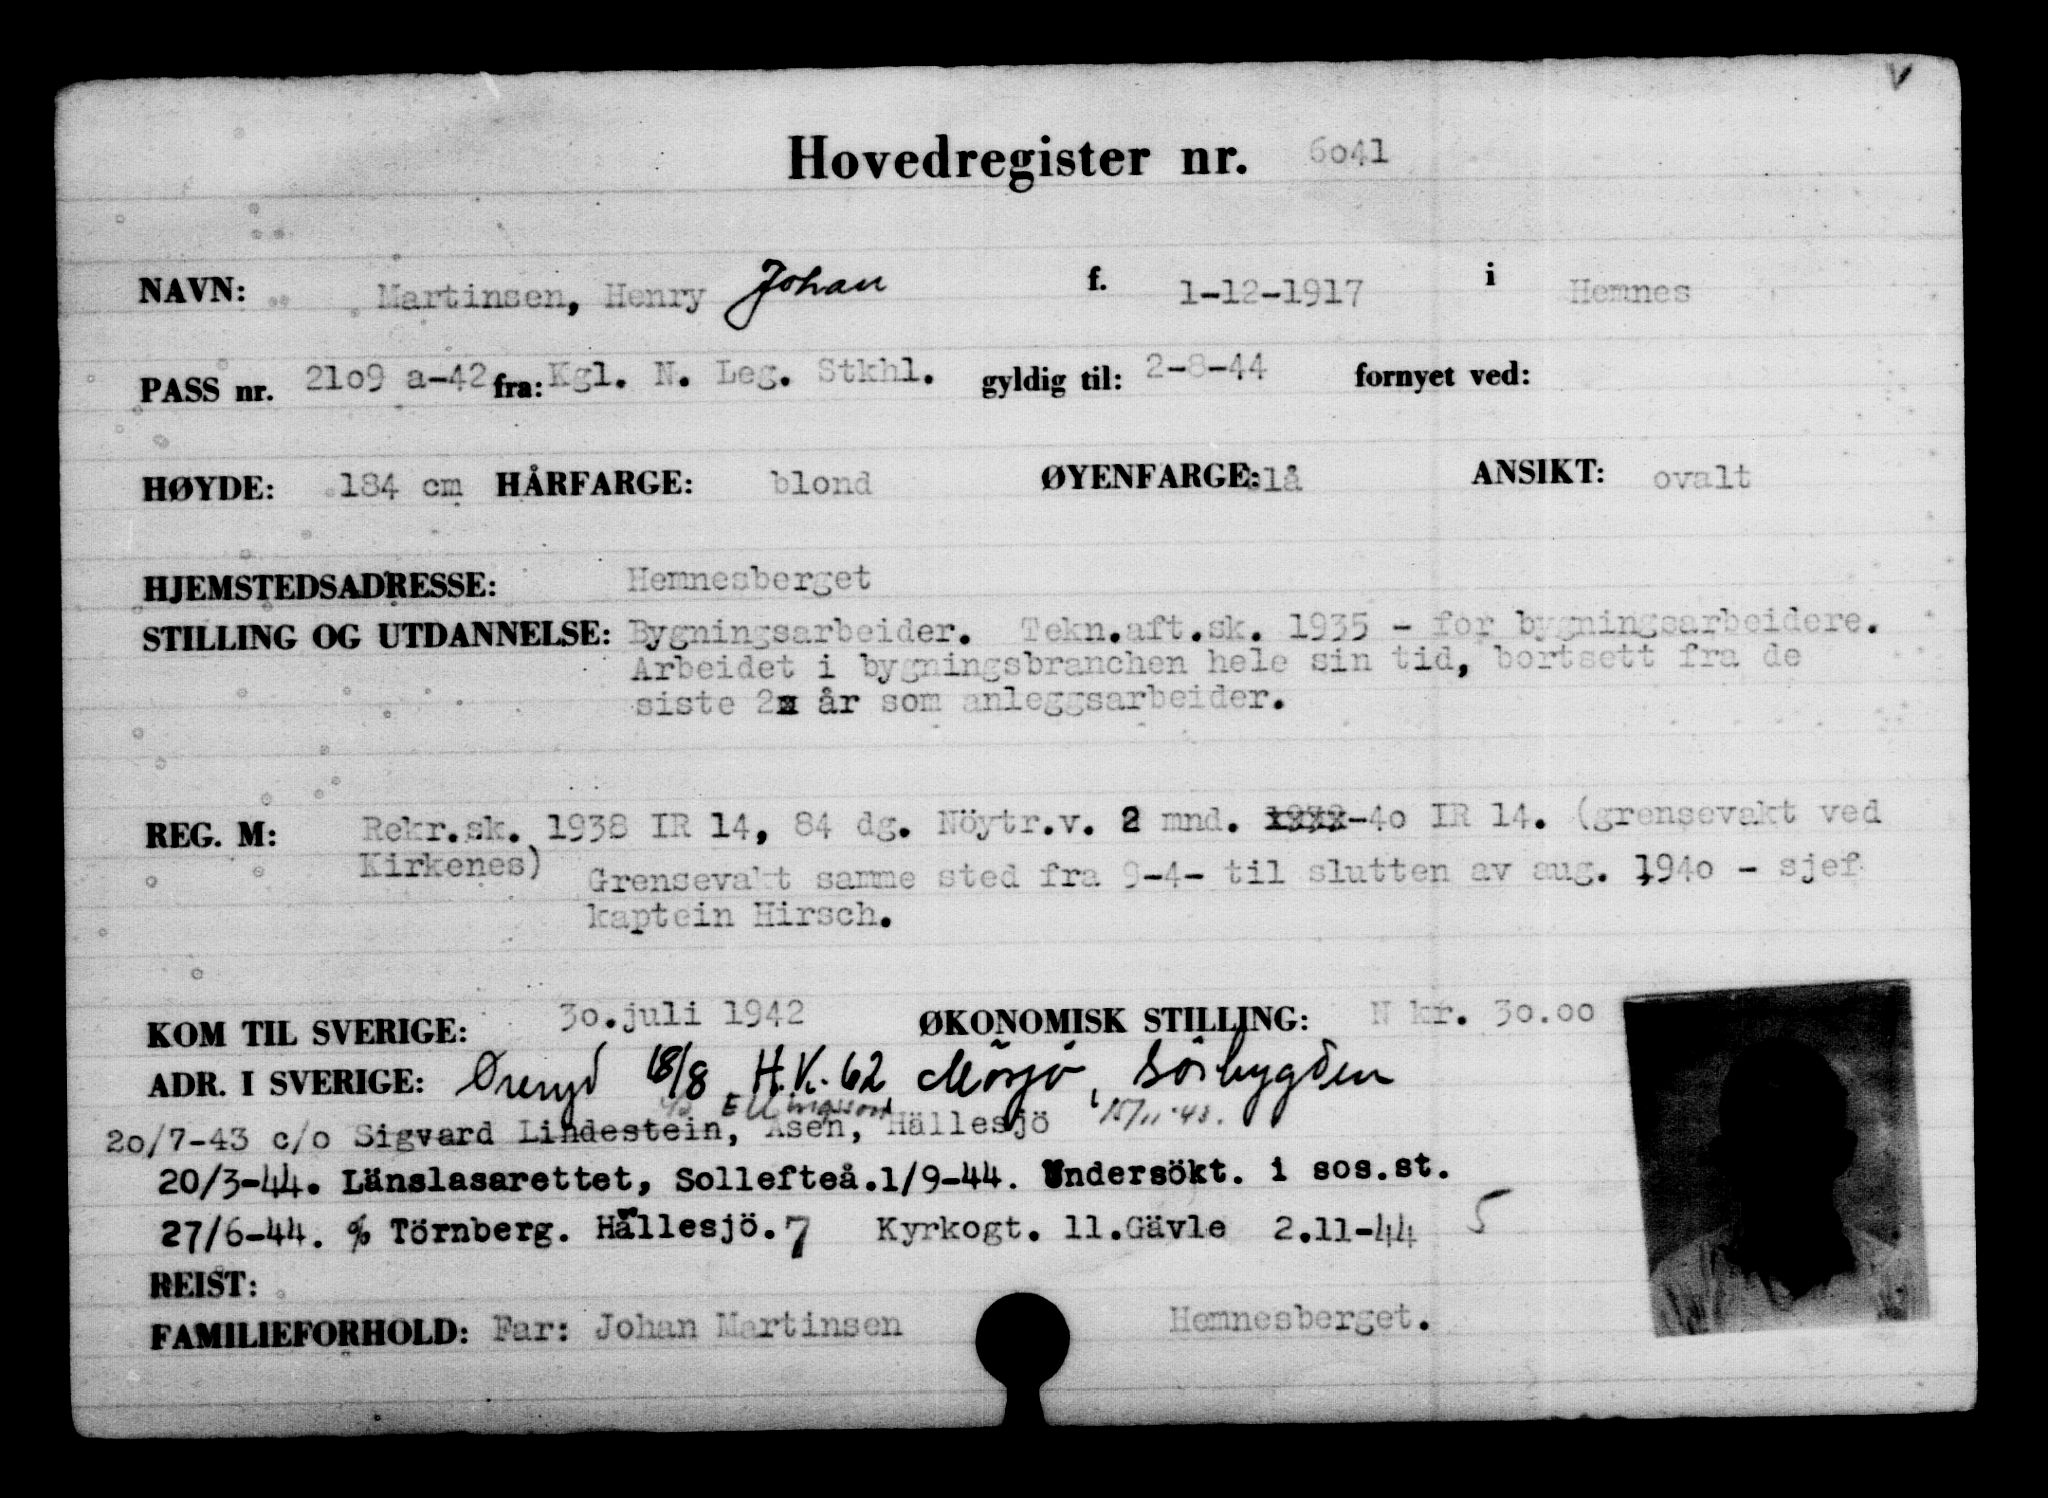 Hovedregister nr. 6o41
NAVN: Martinsen, Henry Johan f. 1-12-1917 i Hemnes
PASS nr. 21o9 a-42 fra: Kgl. N. Leg. Stkhl. gyldig til: 2-8-44 fornyet ved:
HØYDE: 184 cm HÅRFARGE: blond ØYENFARGE: blå ANSIKT: ovalt
HJEMSTEDSADRESSE: Hemnesberget
STILLING OG UTDANNELSE: Bygningsarbeider. Tekn.aft.sk. 1935 - for bygningsarbeidere.
Arbeidet i bygningsbranchen hele sin tid, bortsett fra de
siste 2 år som anleggsarbeider.
REG. M: Rekr.sk. 1938 IR 14, 84 dg. Nöytr.v. 2 mnd. -4o IR 14. (grensevakt ved
Kirkenes)
Grensevakt samme sted fra 9-4- til slutten av aug. 194o - sjef
kaptein Hirsch.
KOM TIL SVERIGE: 3o.juli 1942 ØKONOMISK STILLING: N kr. 3o.oo
ADR. I SVERIGE: Øreryd 18/8 H.V. 62 Mösjö, Sörbygden
c/o Ellingsson 15/11-43.
2o/7-43 c/o Sigvard Lindestein, Åsen, Hällesjö
20/3-44. Länslasarettet, Sollefteå. 1/9-44. Undersökt. i sos.st.
27/6-44. % Törnberg. Hällesjö. 7 Kyrkogt. 11. Gävle 2.11-44 5
REIST:
FAMILIEFORHOLD: Far: Johan Martinsen Hemnesberget.